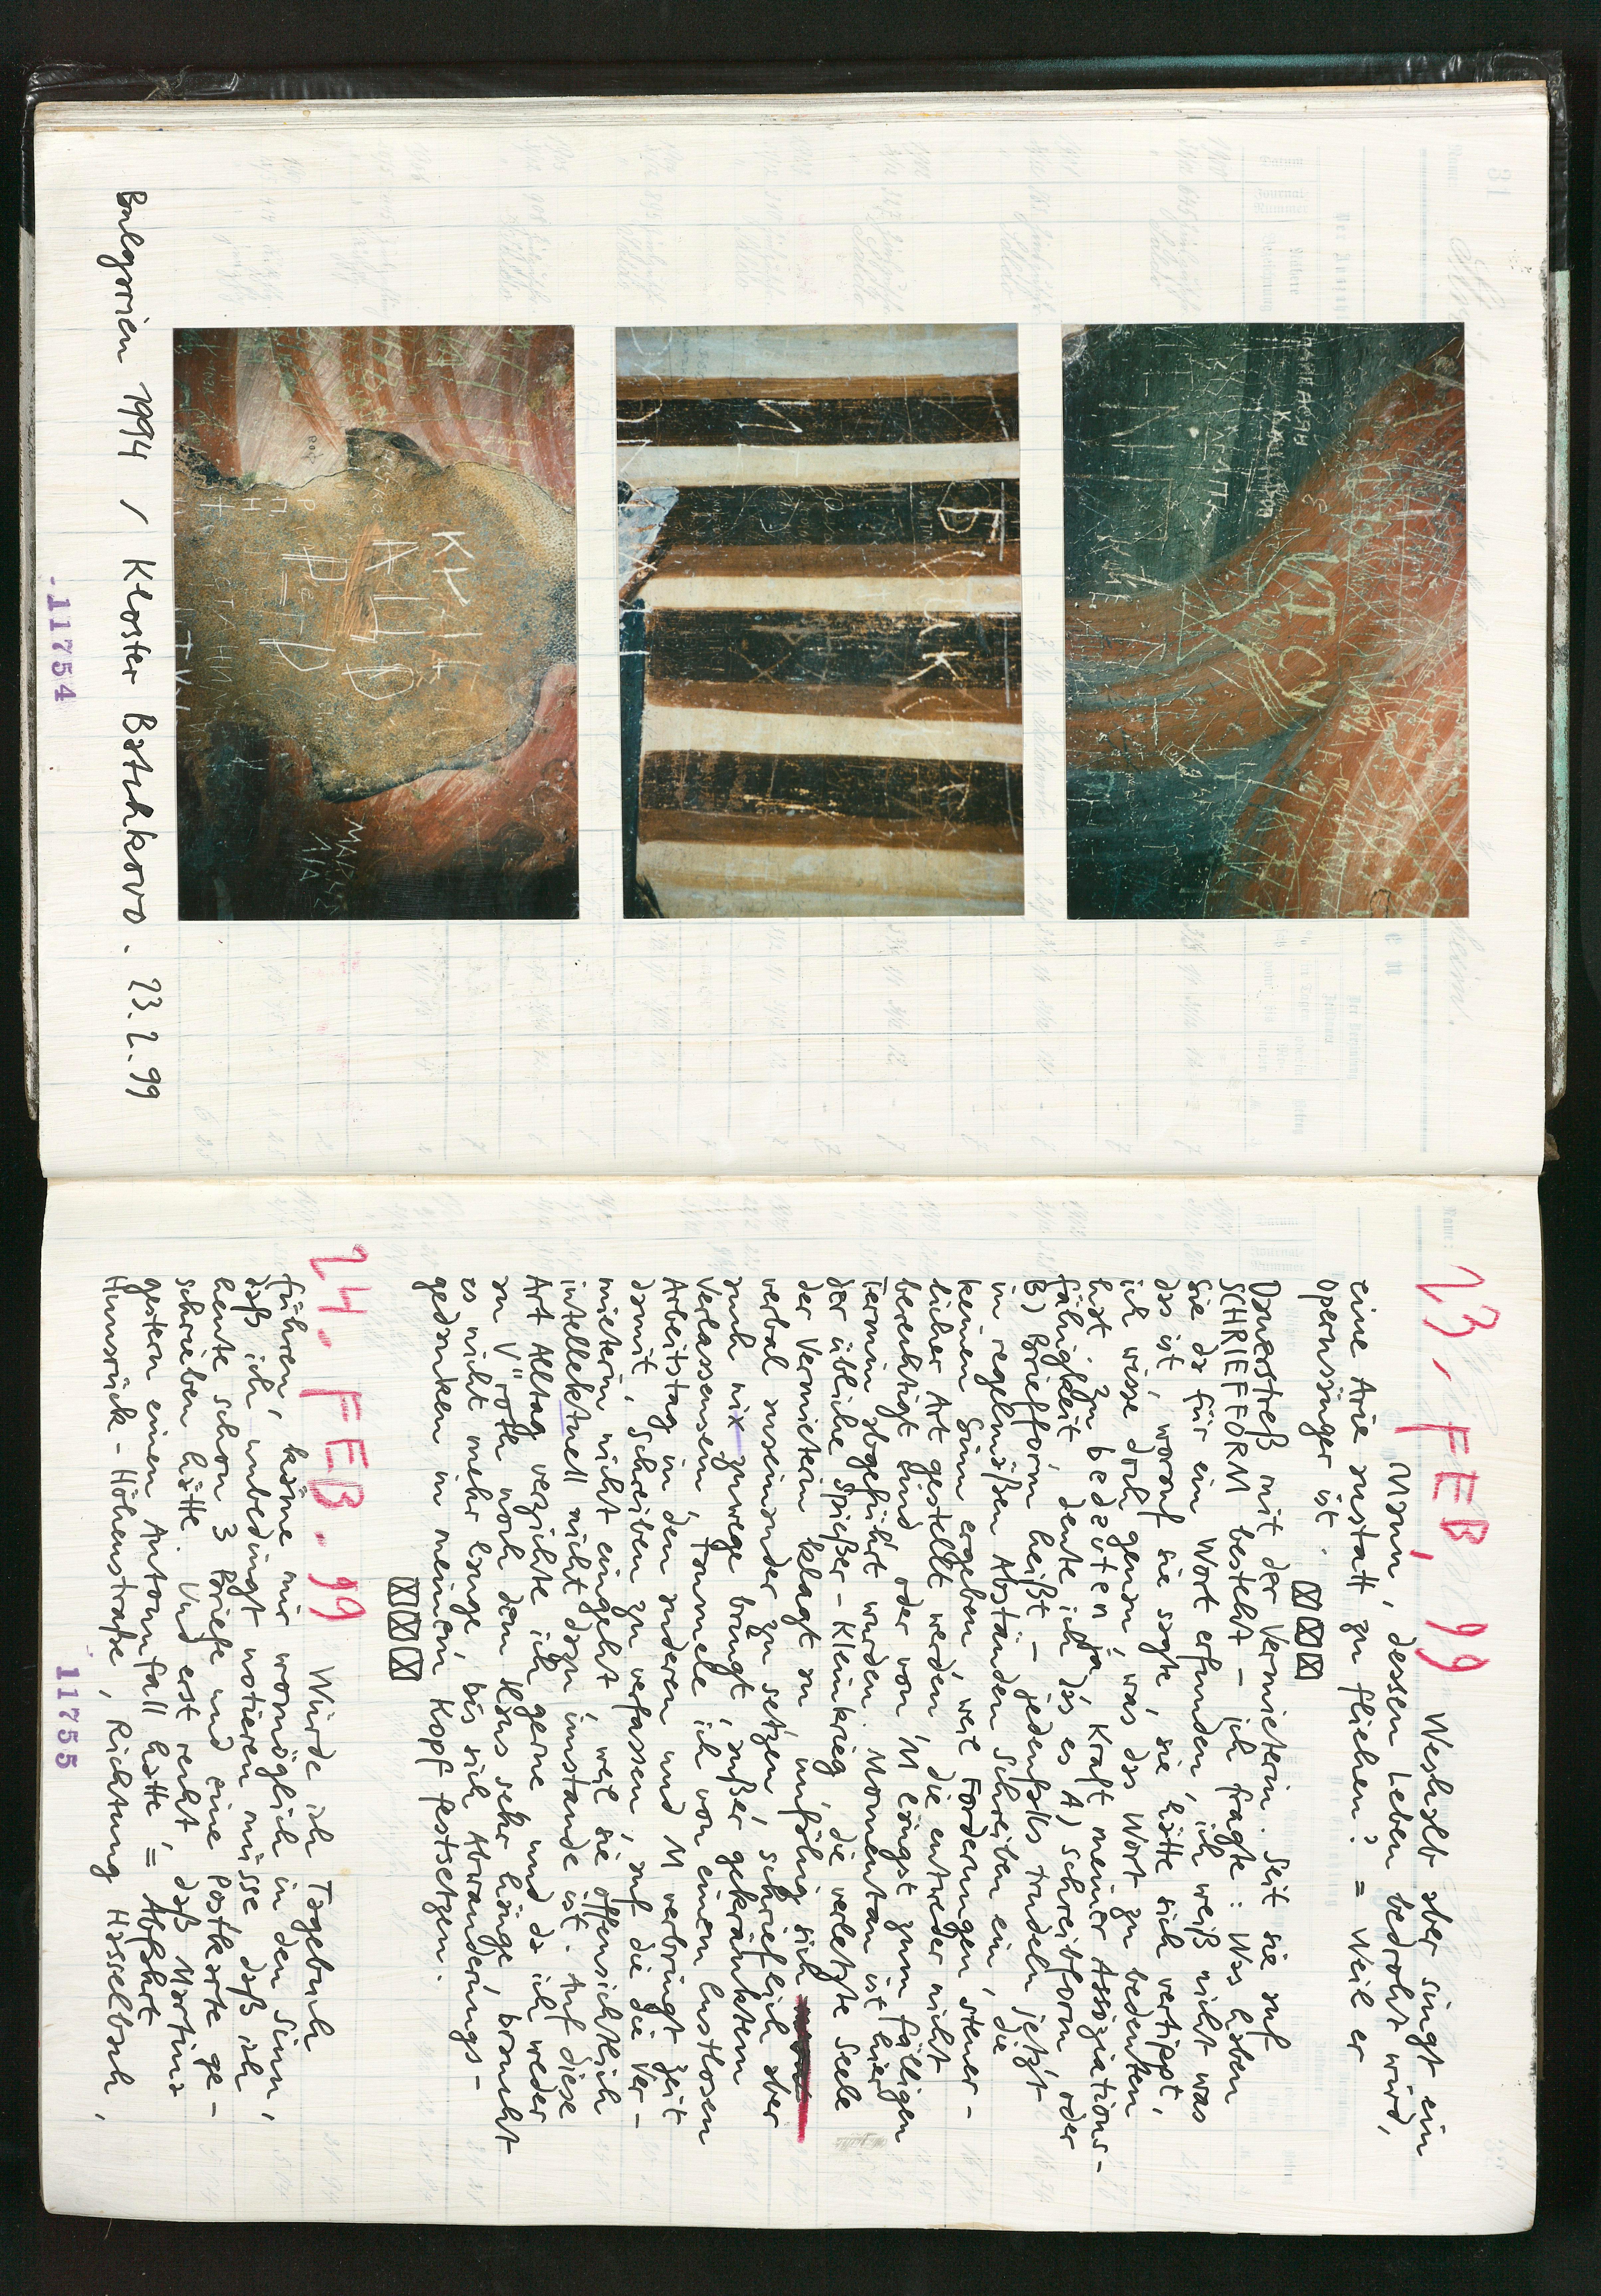 Bulgarien 1994 / Kloster Batchkovo. 23.2.99
11754
23. FEB. 99 Weshalb aber singt ein
Mann, dessen Leben bedroht wird,
eine Arie anstatt zu fliehen? = Weil er
Opernsänger ist.
Dauerstreß mit der Vermieterin. Seit sie auf
SCHRIEFFORM besteht – ich fragte: Was haben
Sie da für ein Wort erfunden, ich weiß nicht was
das ist, worauf sie sagte, sie hätte sich vertippt,
ich wisse doch genau, was das Wort zu bedeuten
hat. Zu bedäuten ja. Kraft meiner Assoziations-
fähigkeit deute ich däs es A) Schreibform oder
B) Briefform heißt – jedenfalls trudeln jetzt
in regelmäßigen Abständen Schreiben ein, die
keinen Sinn ergeben weil Forderungen steuer-
licher Art gestellt werden die entweder nicht
berechtigt sind oder von M längst zum fälligen
Termin abgeführt wurden. Momentan ist hier
der übliche Spießer-Kleinkrieg, die verletzte Seele
der Vermieterin klagt an unfähig sich
verbal auseinander zu setzen, schrieflich aber
auch nix zuwege bringt, außer gekränktem
Verlassensein, taumele ich von einem lustlosen
Arbeitstag in den anderen und M verbringt Zeit
damit, Schreiben zu verfassen, auf die die Ver-
mieterin nicht eingeht, weil sie offensichtlich
intellektuell nicht dazu imstande ist. Auf diese
Art Alltag verzichte ich gerne und da ich weder
an Vöröth noch dem Haus sehr hänge, braucht
es nicht mehr lange, bis sich Abwanderungs-
gedanken in meinem Kopf festsetzen.
24. FEB. 99 Würde ich Tagebuch
führen, käme mir womöglich in den Sinn,
daß ich unbedingt notieren müsse daß ich
heute schon 3 Briefe und eine Postkarte ge-
schrieben hätte. Und erst recht, daß Martina
gestern einen Autounfall hatte, = Abfahrt
Hunsrück-Höhenstraße, Richtung Hasselbach,
11755